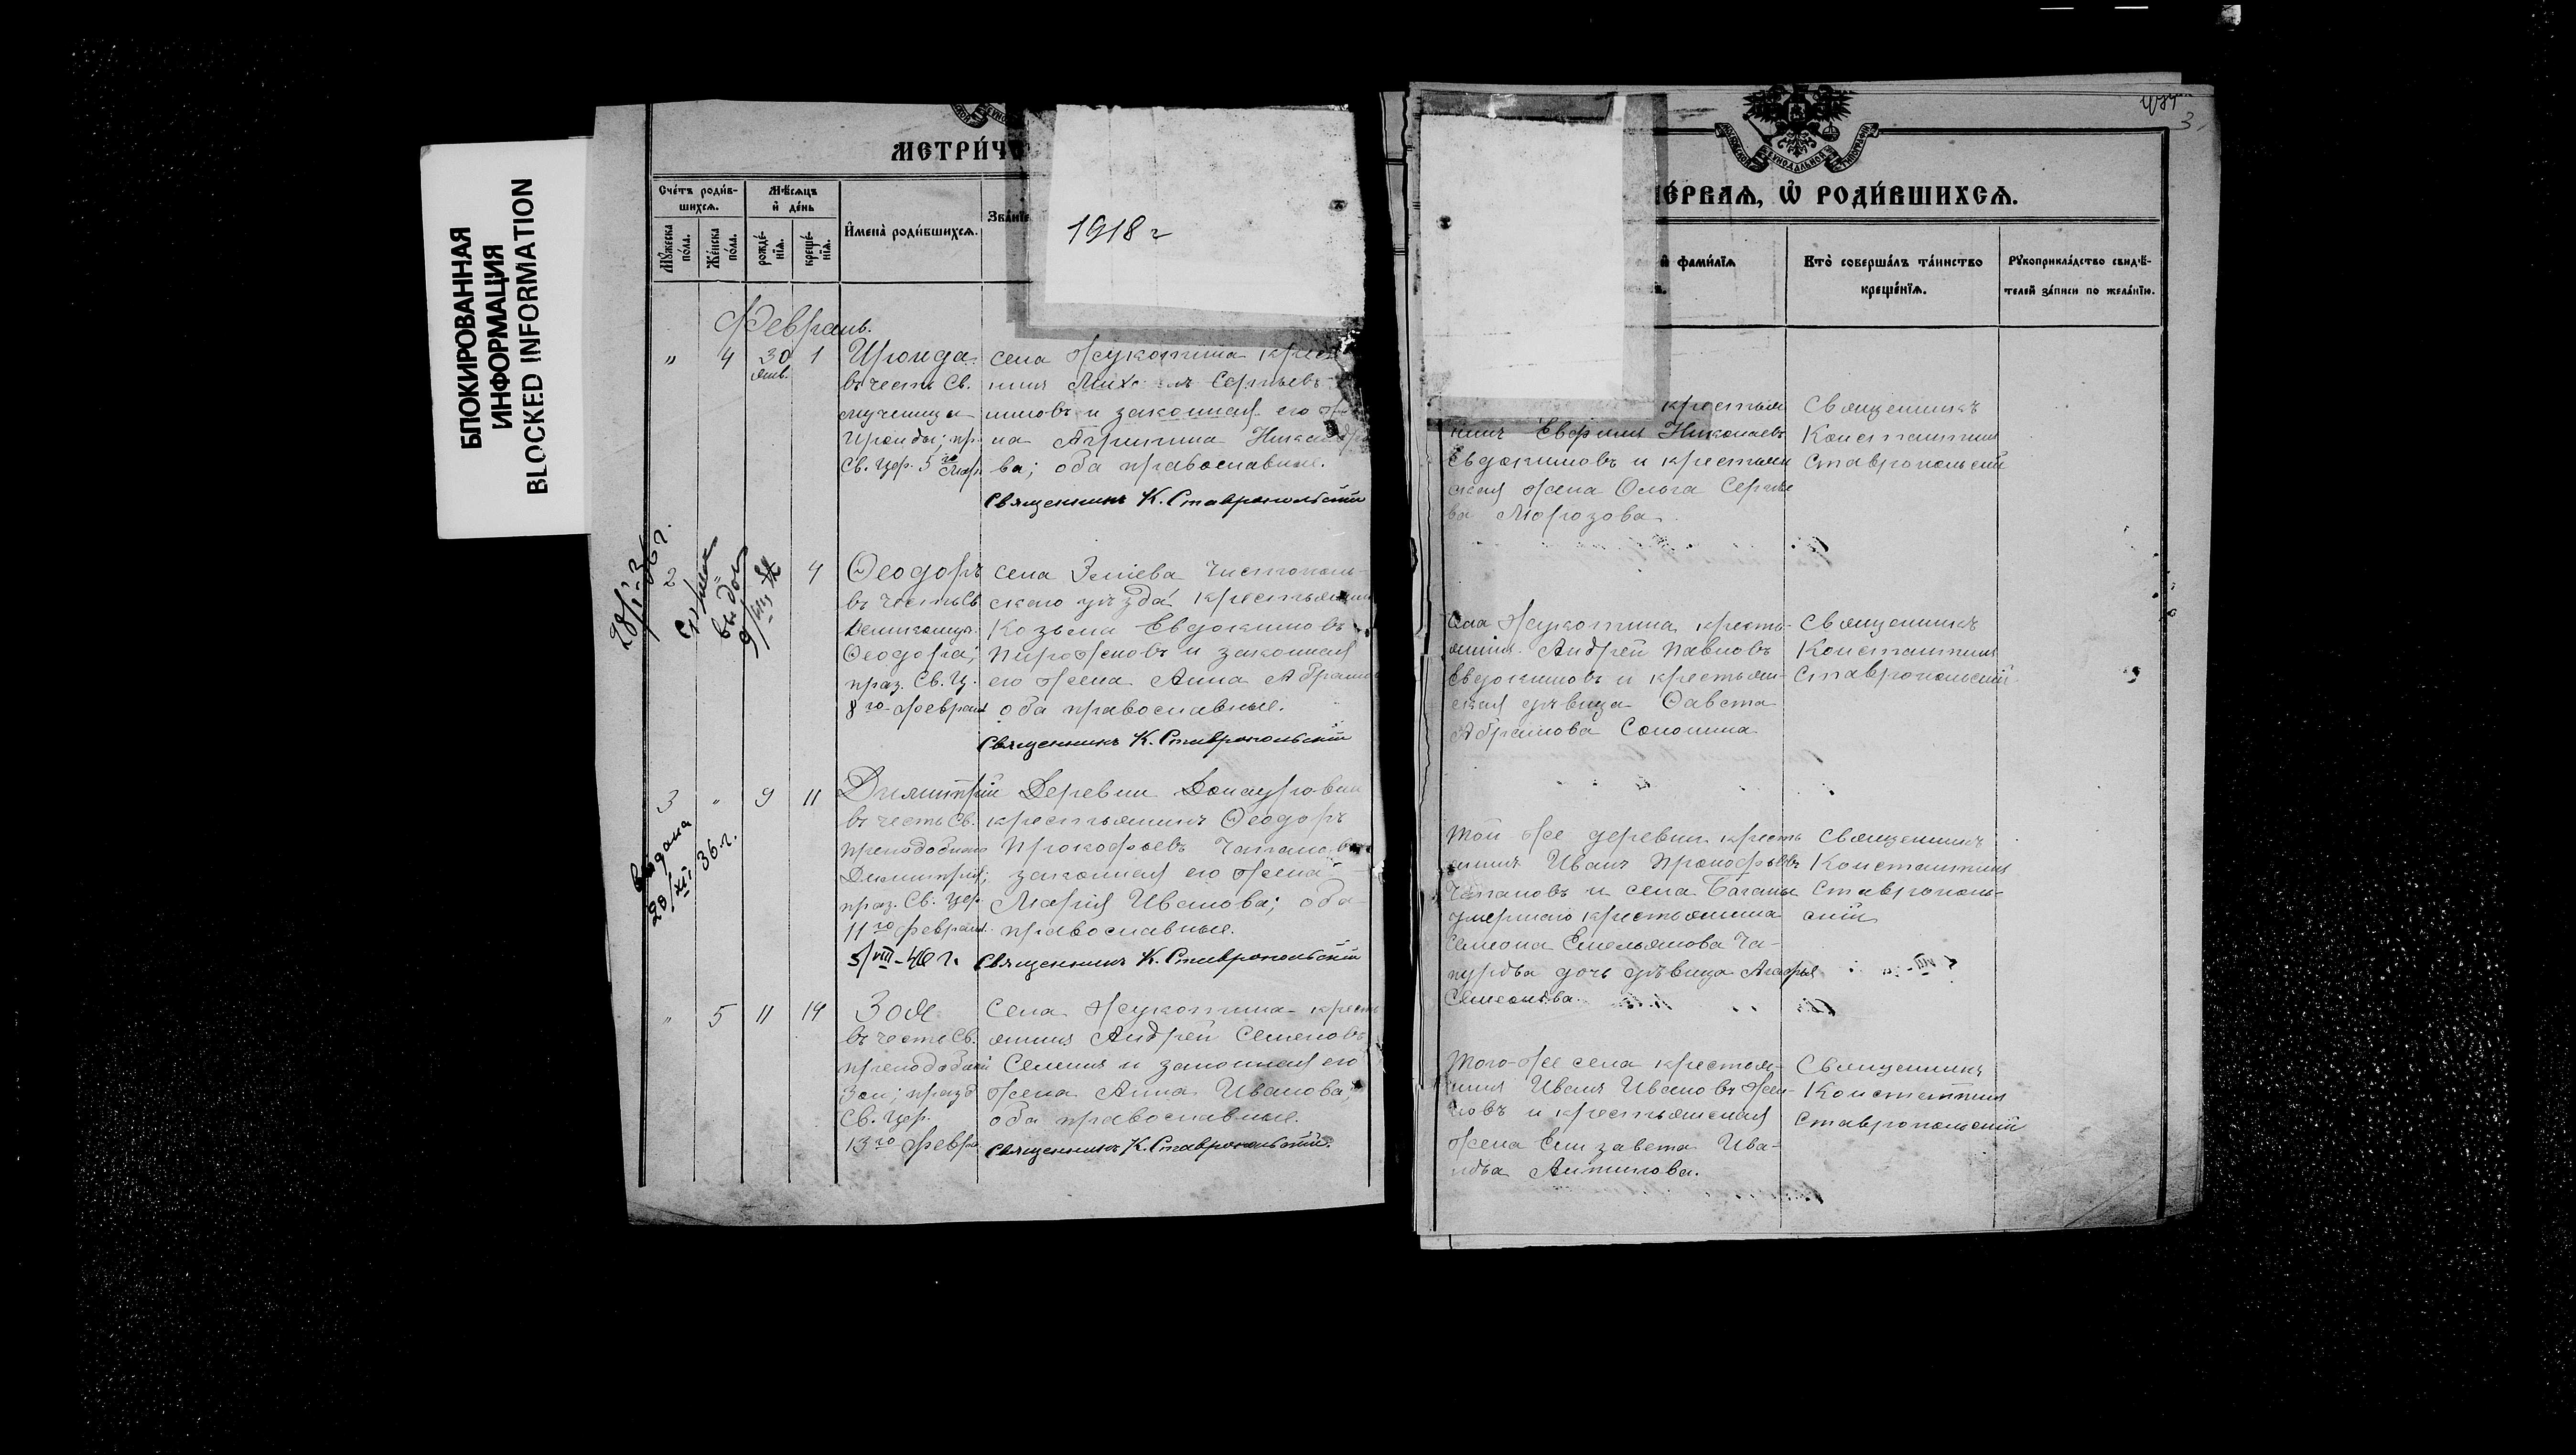 БЛОКИРОВАННАЯ
ИНФОРМАЦИЯ
BLOCKED INFORMATION
МЕТРИ́Ч
Сче́тъ роди́в-
шихсѧ.
Мѣ́сѧцъ
и҆ де́нь
Мꙋ́жеска
по́ла.
Же́нска
по́ла.
рожде́-
нїѧ.
креще́-
нїѧ.
И҆мена̀ роди́вшихсѧ.
Зва́нїе
1918 г
Февраль.
" 4 30 1
янв.
Ираида
въ честь Св.
мученицы
Ираиды; пр.
Св. Цер. 5го Мар.
села Жукотина крест
нинъ Сергѣевъ
и законная его
на Агрипина
ва; оба православные.
Священникъ К. Ставропольскій
28/I-36 г.
2 " 4
Ѳеодоръ
въ честь Св
Великомуч.
Ѳеодора;
праз. Св. Ц.
8го Феврал
села Змiева Чистополь-
скаго уѣзда крестьянин
Козьма Евдокимовъ
Пирожковъ и законная
его жена Анна Абрамо
оба православные.
Священникъ К. Ставропольскій
3 " 9 11
Выдана
20/XI 36 г.
Димитрій
въ честь Св.
преподобнаго
Димитрія;
праз. Св. Цер.
11го Феврал.
5/VIII-40 г.
Деревни Донауровки
крестьянинъ Ѳеодоръ
Прокофьевъ
законная его жена
Марія Иванова; оба
православные.
Священникъ К. Ставропольскій
" 5 11 14
Зоя
въ честь Св.
преподобной
Зои; празд
Св. Цер.
13го Февра
Села Жукотина крест
янинъ Андрей Семеновъ
Семинъ и законная его
жена Анна Иванова;
оба православные.
Священникъ К. Ставропольскій.
3
МОСКОВСКОЙ СѴНОДАЛЬНОЙ ТИПОГРАФІИ
Е́РВАѦ, Ѡ҆ РОДИ́ВШИХСѦ.
и҆ фами́лїѧ
Кто̀ соверша́лъ та́инство
креще́нїѧ.
Рꙋкоприкла́дство свидѣ́-
телей за́писи по жела́нїю.
крестья
нинъ Ефимъ Николаевъ
Евдокимовъ и крестьян
ская жена Ольга Сергѣе
ва Морозова.
Священникъ
Константинъ
Ставропольскій
Села Жукотина кресть-
янинъ Андрей Павловъ
Евдокимовъ и крестьян-
ская дѣвица
Абрамова Солонина
Священникъ
Константинъ
Ставропольскій
Той же деревни кресть
янинъ Иванъ Прокофьевъ
и села Баганы
умершаго крестьянина
Семена Емельянова Ча-
дочь дѣвица Агафья
Семенова.
Священникъ
Константинъ
Ставрополь-
скій
Того же села крестья-
нинъ Иванъ Ивановъ
и крестьянская
жена Елизавета Ива-
нова Антипова.
Священникъ
Константинъ
Ставропольскій